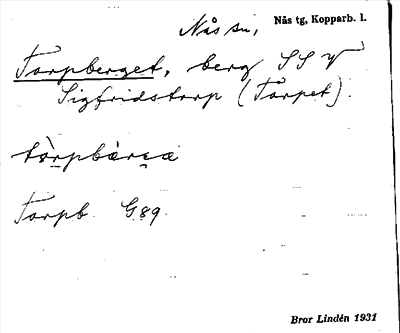 Nås sn, Nås tg, Kopparb. l.
Torpberget, berg SSV
Sigfridstorp (Torpet).
Torpb. G89.
Bror Lindén 1931